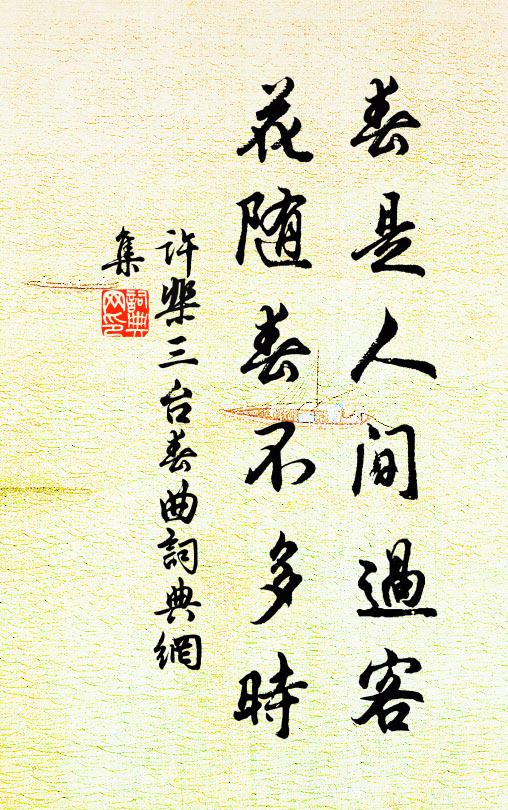 春是人间過客
花随春不多時
许棐三台春曲詞典網
集
詞典网印